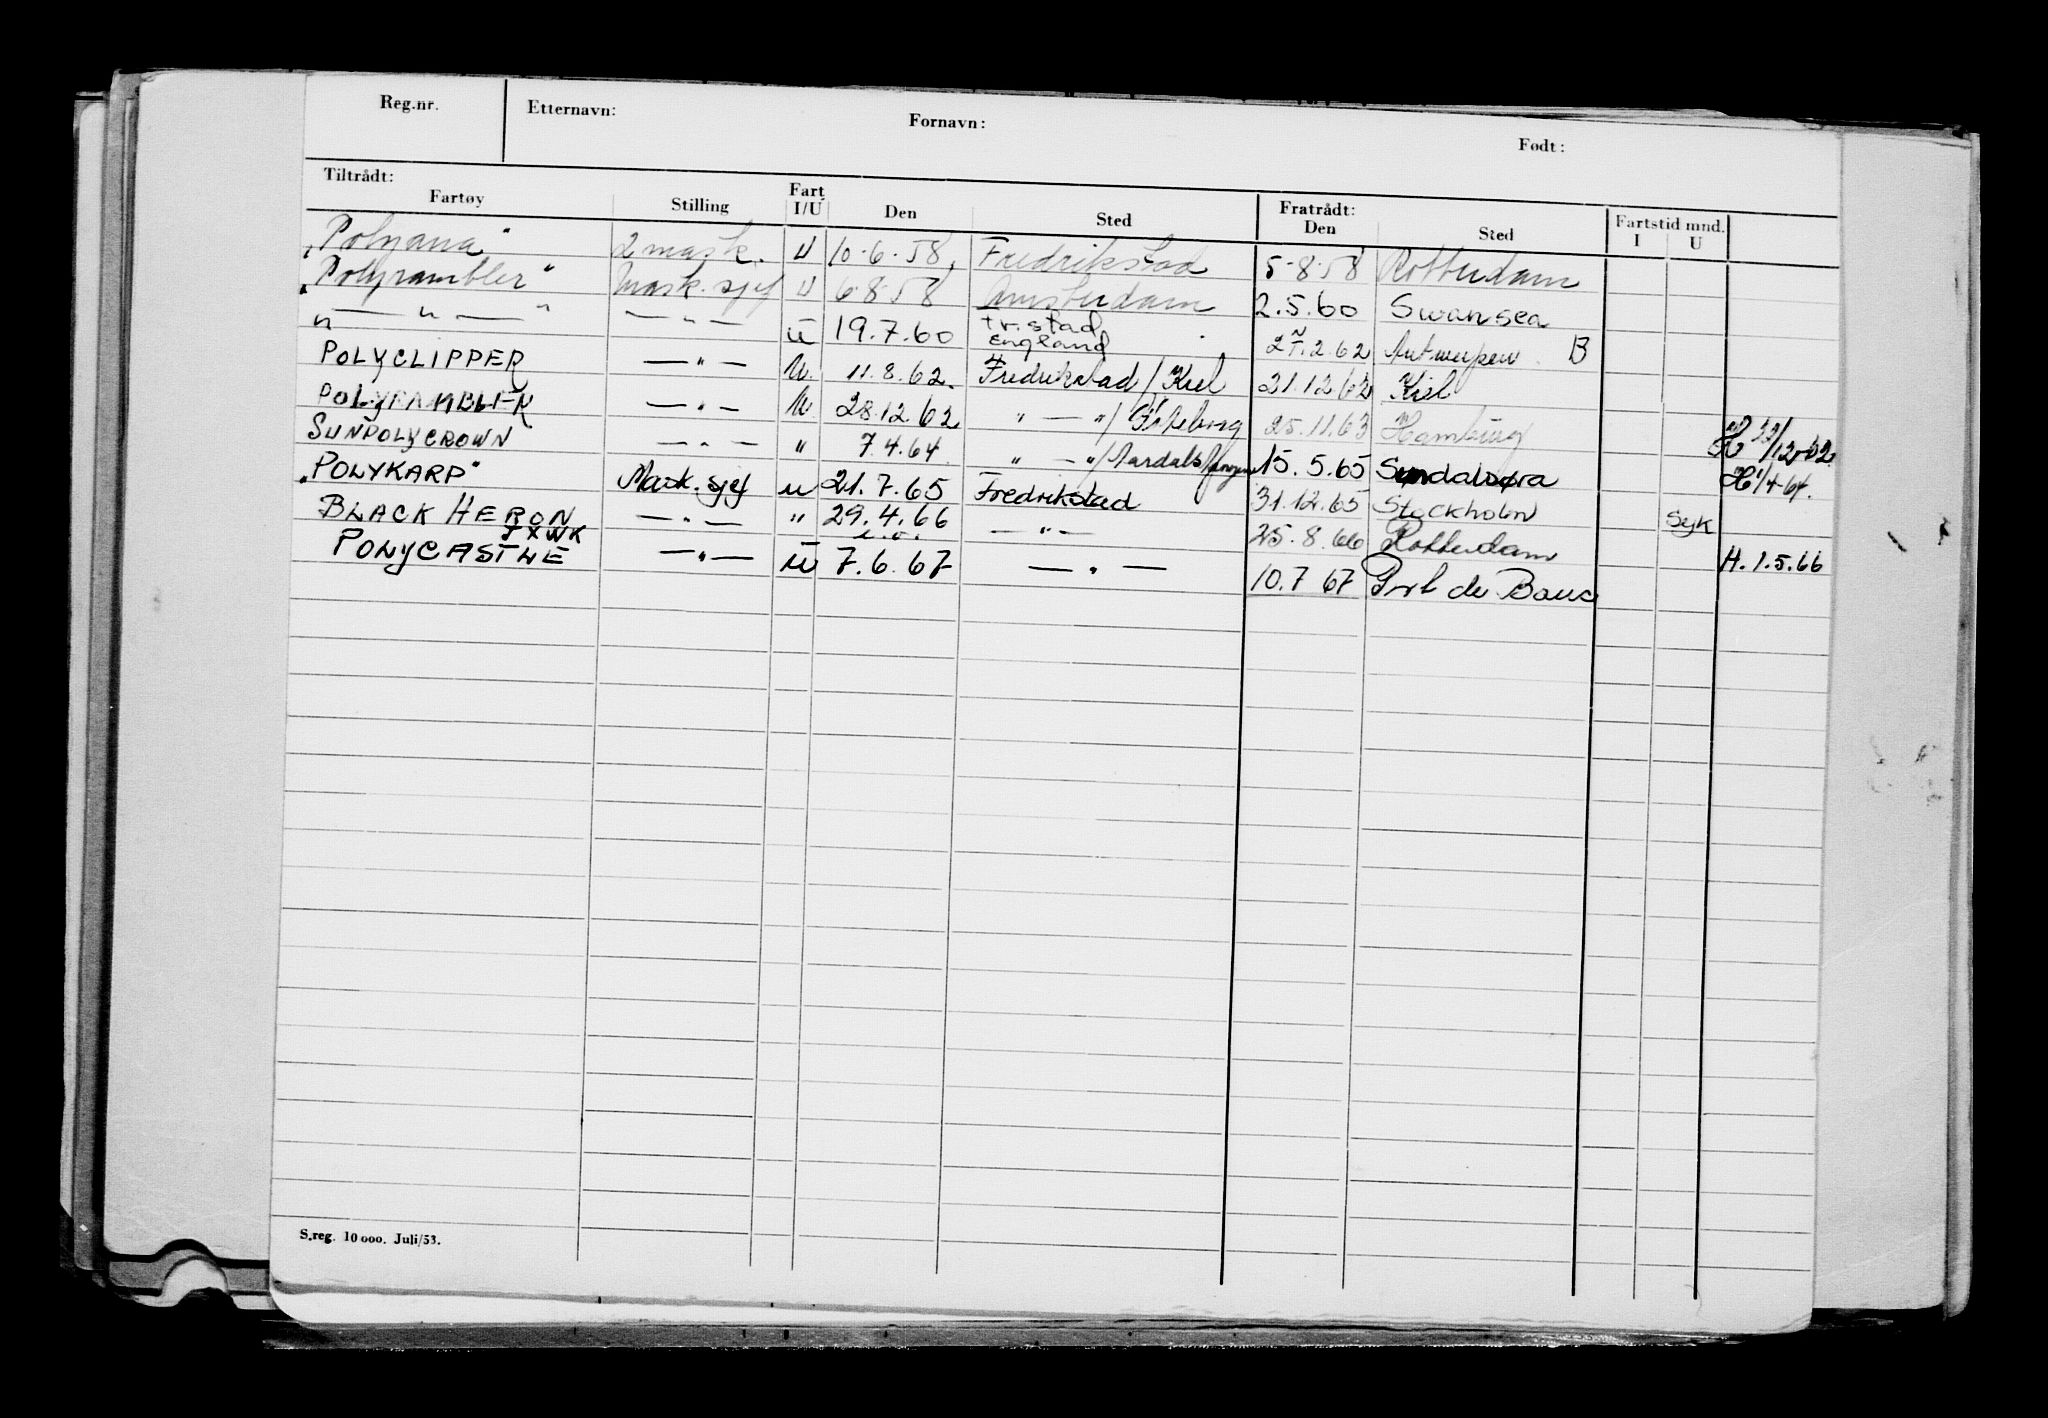 Reg.nr. Etternavn: Fornavn: Født:
Tiltrådt: Fratrådt: Fartstid mnd.
Fartøy Stilling Fart I/U Den Sted Den Sted I U
"Polyana" 2 mask. U 10.6.58. Fredrikstad 5.8.58 Rotterdam
"Polyrambler" Mask.sjef U 6.8.58 Amsterdam 2.5.60 Swansea
" — " — " — " — U 19.7.60 tr.stad England 2.62 Antwerpen B
POLYCLIPPER — " — U. 11.8.62. Fredrikstad / Kiel 21.12.62 Kiel
POLYRAMBLER — " — U 28.12.62 " — " / Göteborg 25.11.63 Hamburg 12-62
SUNPOLYCROWN — " — " 7.4.64 " — " / 15.5.65 Sundalsøra H 1/4-64.
"POLYKARP" Mask.sjef U 21.7.65 Fredrikstad 31.12.65 Stockholm Syk
BLACK HERON — " — " 29.4.66 — " — 25.8.66 Rotterdam H. 1.5.66
JXWK
POLYCASTLE — " — U 7.6.67 — " — 10.7 67 Port de Bouc
S.reg. 10 000. Juli/53.